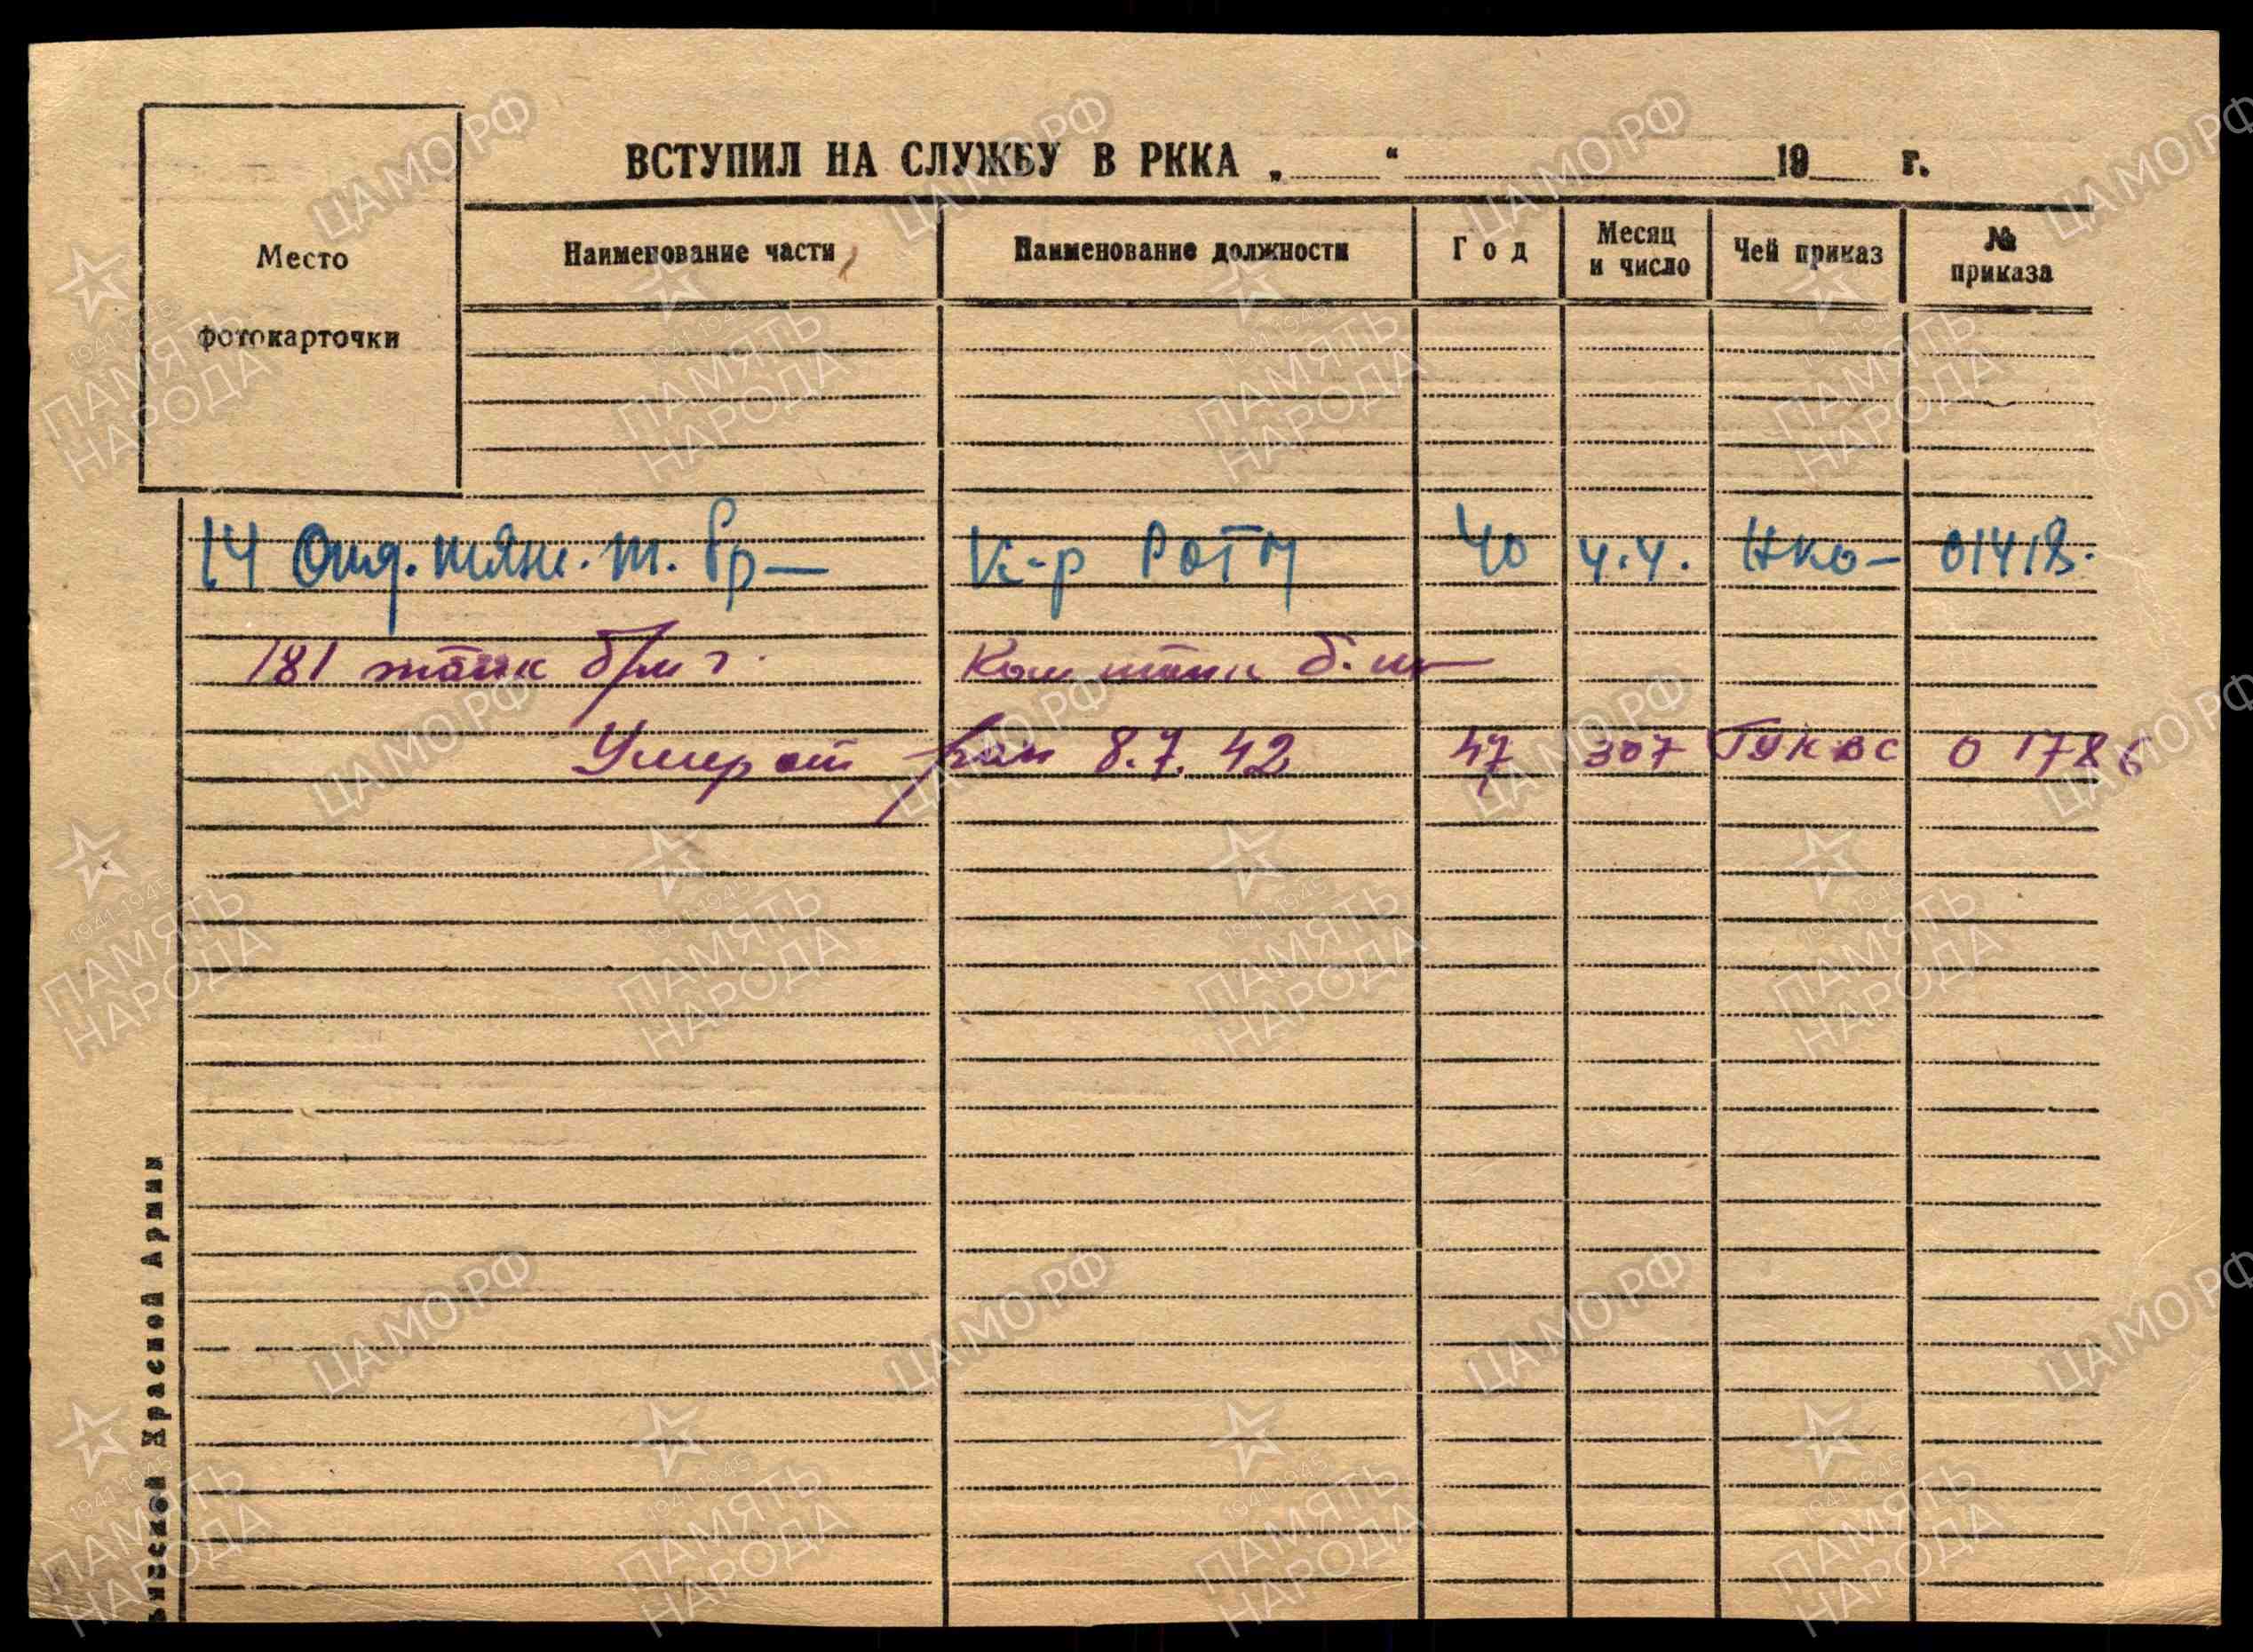 ВСТУПИЛ НА СЛУЖБУ В РККА „ “ 19 г.
Место
фотокарточки
Наименование части
Наименование должности
Год
Месяц
и число
Чей приказ
№
приказа
14 Отд. тяж. т. бр — К-р РОТЫ 40 4.4. НКО - 01418.
181 танк бриг. Ком танк б-на
Умер от ран 8.7.42 47 307 ГУК ВС 01786
Красной Армии
ЦАМО.РФ
1941-1945
ПАМЯТЬ
НАРОДА